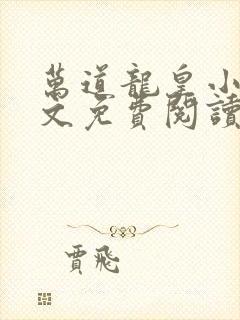 萬道龍皇小
文免費閱讀
賈飛